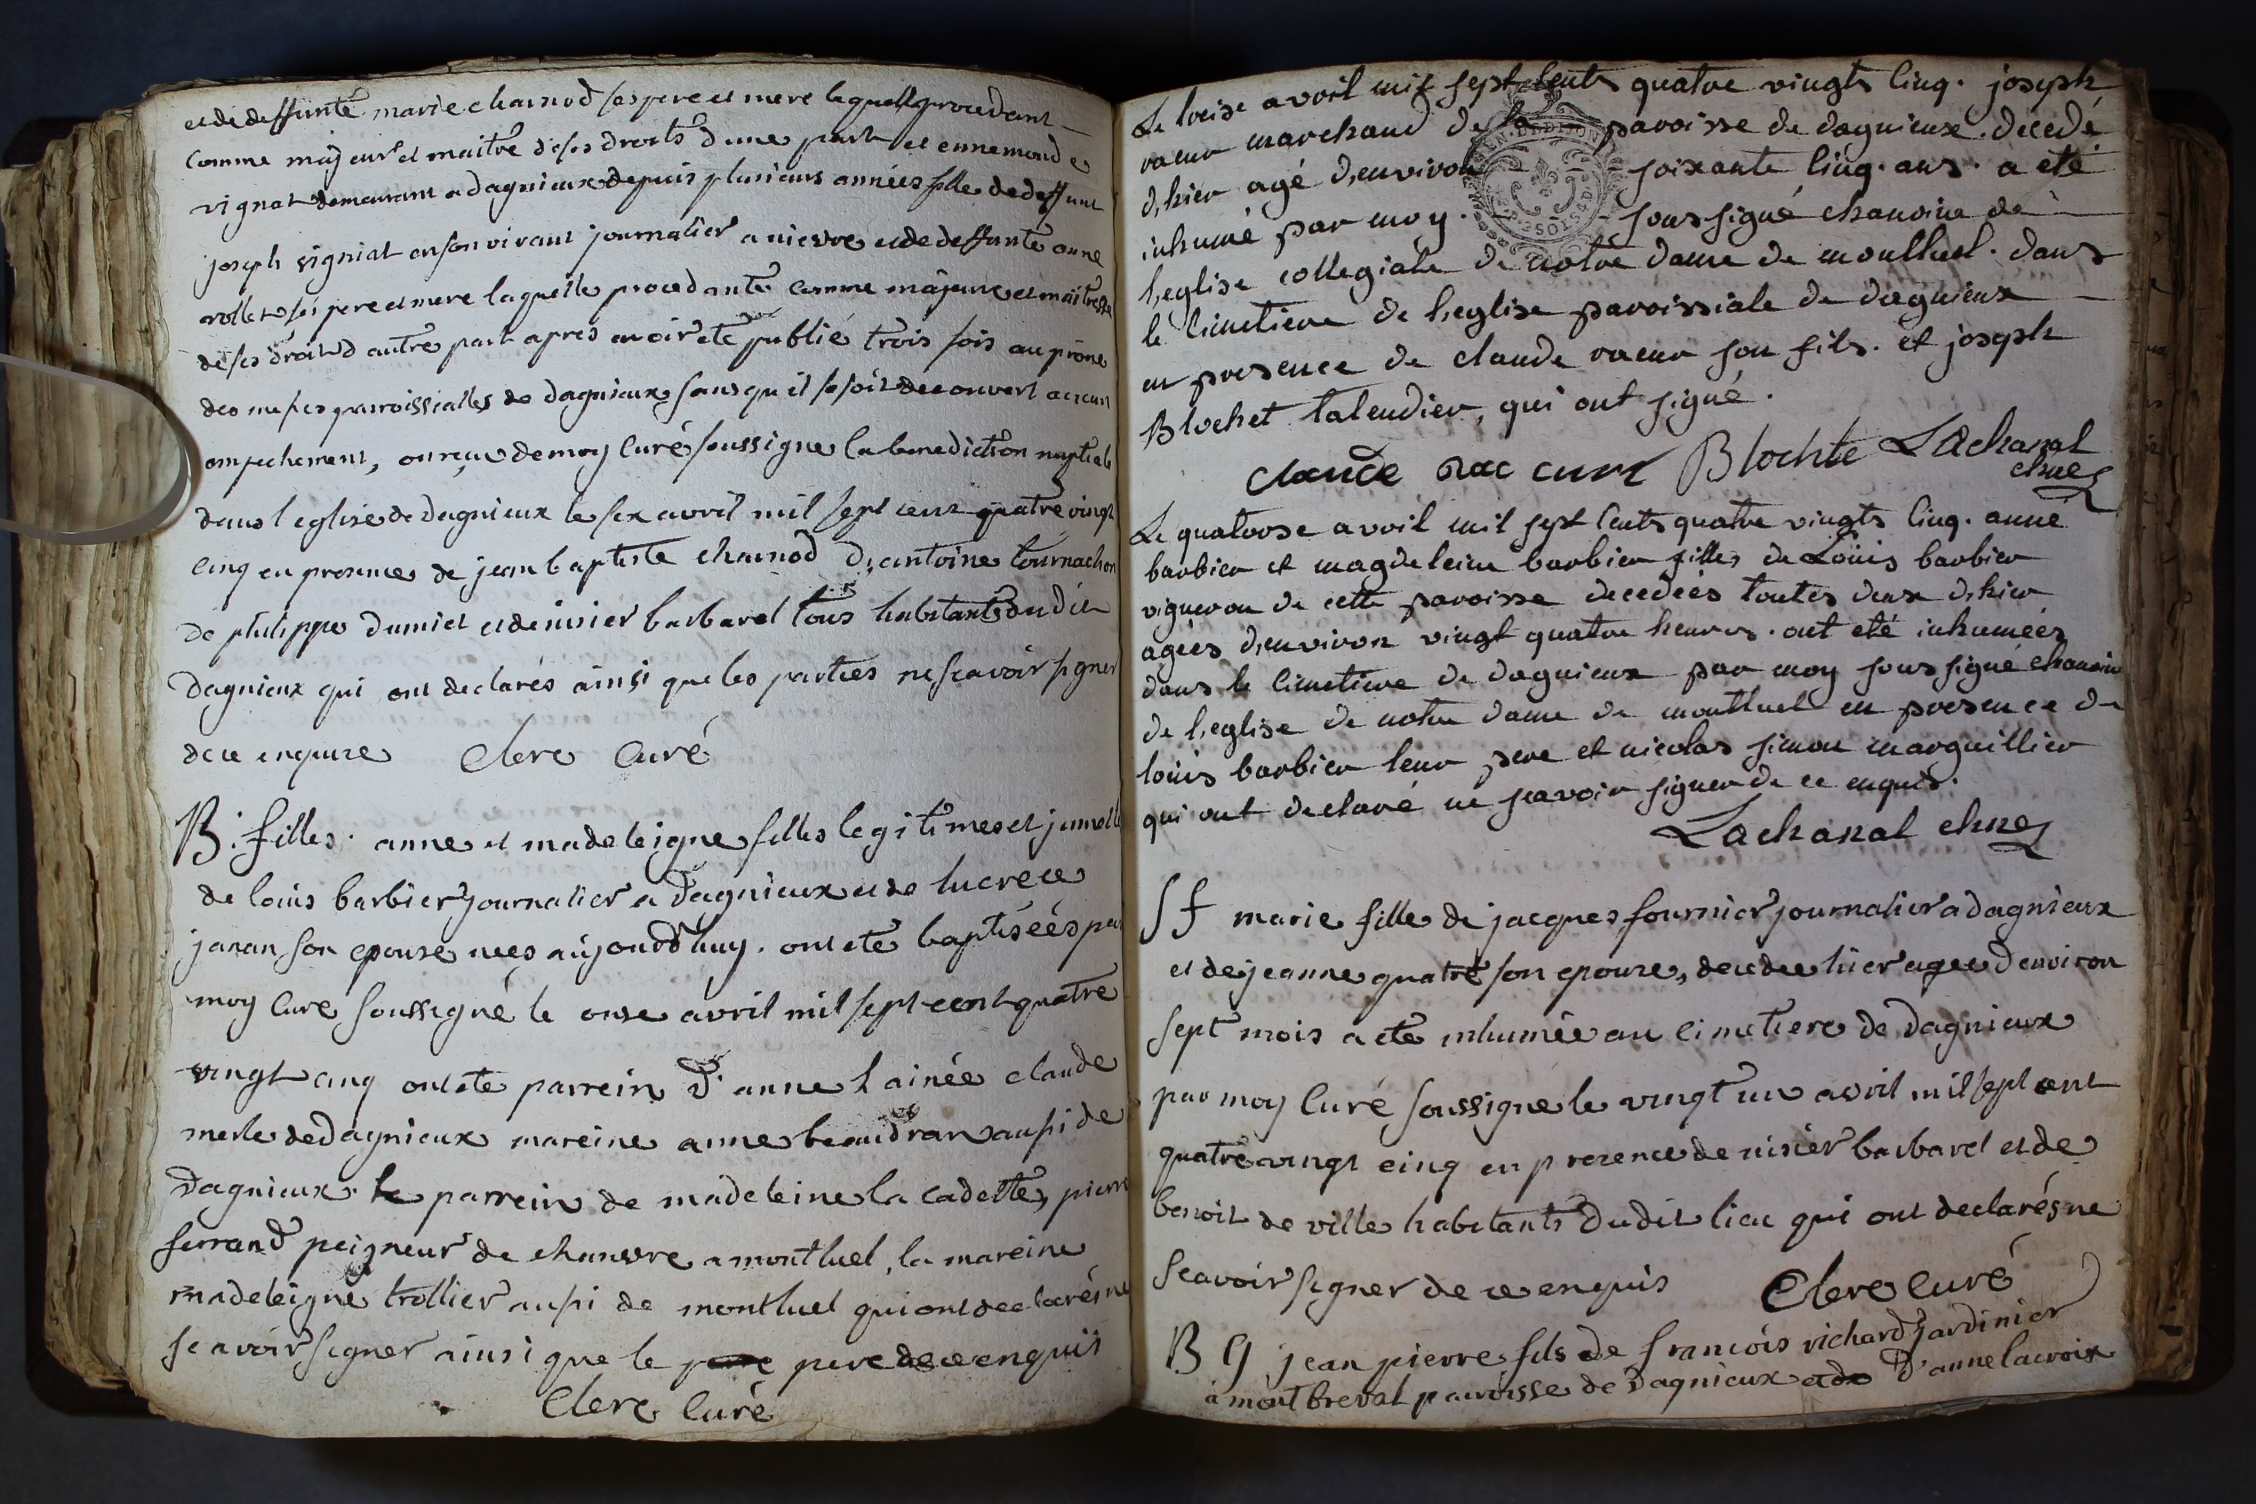 et de deffunte marie chainod ses pere et mere lequel procedant
comme majeur et maitre de ses droits d'une part et ennemonde
vignat demeurant a dagnieux depuis plusieurs années fille de deffunt
joseph vigniat en son vivant journalier a nievre et de deffunte anne
rollet ses pere et mere laquelle procedante comme majeure et maitresse
de ses droits d'autre part apres avoir eté publié trois fois au prone
des messes parroissialles de dagnieux sans qu'il se soit decouvert aucun
empechement, ont reçu de moy Curé soussigne la benediction nuptiale
dans l'eglise de Dagnieux le six avril mil sept cent quatre vingt
cinq en presence de jean baptiste chainod d'antoine tournachon
de philippe dumiet et de nisier barbaret tous habitants dudit
dagnieux qui ont declarés ainsi que les parties ne scavoir signer
de ce enquire Clerc Curé
B. filles. anne et madeleigne filles legitimes et jumelles
de louis barbier journalier a Dagnieux et de lucrece
janan son epouse nees aujourd'huy. ont ete baptiséés par
moy Curé soussigné le onse avril mil sept cent quatre
vingt cinq ont ete parrein d'anne l'ainée claude
merle de Dagnieux mareine anne beaudran aussi de
Dagnieux. le parrein de madeleine la cadette, pierre
ferrand peigneur de chanvre a montluel, la mareine
madeleigne trollier aussi de montluel qui ont declarés ne
scavoir signer ainsi que le pere de ce enquis
Clerc Curé
Le treise avril mil sept cents quatre vingts cinq. joseph
vacur marchand de la paroisse de dagnieux. decedé
d'hier agé d'environ soixante cinq. ans. a eté
inhumé par moy. soussigné chanoine de
l'eglise collegiale de notre dame de montluel. dans
le cimetiere de l'eglise paroissiale de dagnieux
en presence de claude vacur son fils. et joseph
Blochet talendier, qui ont signé.
claude vac cur Blochte Lachanal
chne
Le quatorse avril mil sept cents quatre vingts cinq. anne
barbier et magdeleine barbier filles de Loüis barbier
vigneron de cette paroisse decedées toutes deux d'hier
agées d'environ vingt quatre heures. ont eté inhumées
dans le cimetiere de dagnieux par moy soussigné chanoine
de l'eglise de notre dame de montluel en presence de
loüis barbier leur pere et nicolas simon marguillier
qui ont declaré ne scavoir signer de ce enquis.
Lachanal chne
S f marie fille de jacques fournier journalier a dagnieux
et de jeanne quatre son epouse, decedee hier agee d'environ
sept mois a ete inhumée au cimetiere de Dagnieux
par moy Curé soussigne le vingt un avril mil sept cent
quatre vingt cinq en presence de nisier barbaret et de
benoit de ville habitants dudit lieu qui ont declarés ne
scavoir signer de ce enquis Clerc Curé
B G jean pierre fils de francois richard jardinier
a montbreval parroisse de Dagnieux et d'anne lacroix